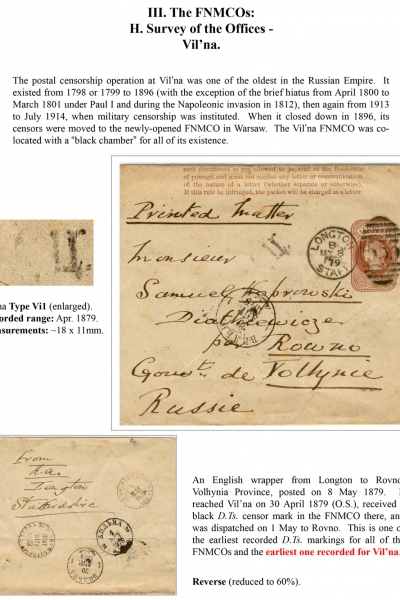 III. The FNMCOs:
H. Survey of the Offices -
Vil'na.
The postal censorship operation at Vil'na was one of the oldest in the Russian Empire. It
existed from 1798 or 1799 to 1896 (with the exception of the brief hiatus from April 1800 to
March 1801 under Paul I and during the Napoleonic invasion in 1812), then again from 1913
to July 1914, when military censorship was instituted. When it closed down in 1896, its
censors were moved to the newly-opened FNMCO in Warsaw. The Vil'na FNMCO was co-
located with a "black chamber" for all of its existence.
such documents as are allowed to be sent at the Book-rate
of postage, and must not enclose any letter or communication
of the nature of a letter (whether separate or otherwise).
If this rule be infringed, the packet will be charged as a letter.
Printed matter
LONGTON
B
MY 8
79
STAFF
Monsieur
Samuel
par Rowno
Gouv^t. de Vollynie
Russie
Type Vi1 (enlarged).
range: Apr. 1879.
~18 x 11mm.
From
Longton
Staffordshire
An English wrapper from Longton to Rovno
Volhynia Province, posted on 8 May 1879.
reached Vil'na on 30 April 1879 (O.S.), received
black D.Ts. censor mark in the FNMCO there, an
was dispatched on 1 May to Rovno. This is one o
the earliest recorded D.Ts. markings for all of th
FNMCOs and the earliest one recorded for Vil'na.
Reverse (reduced to 60%).